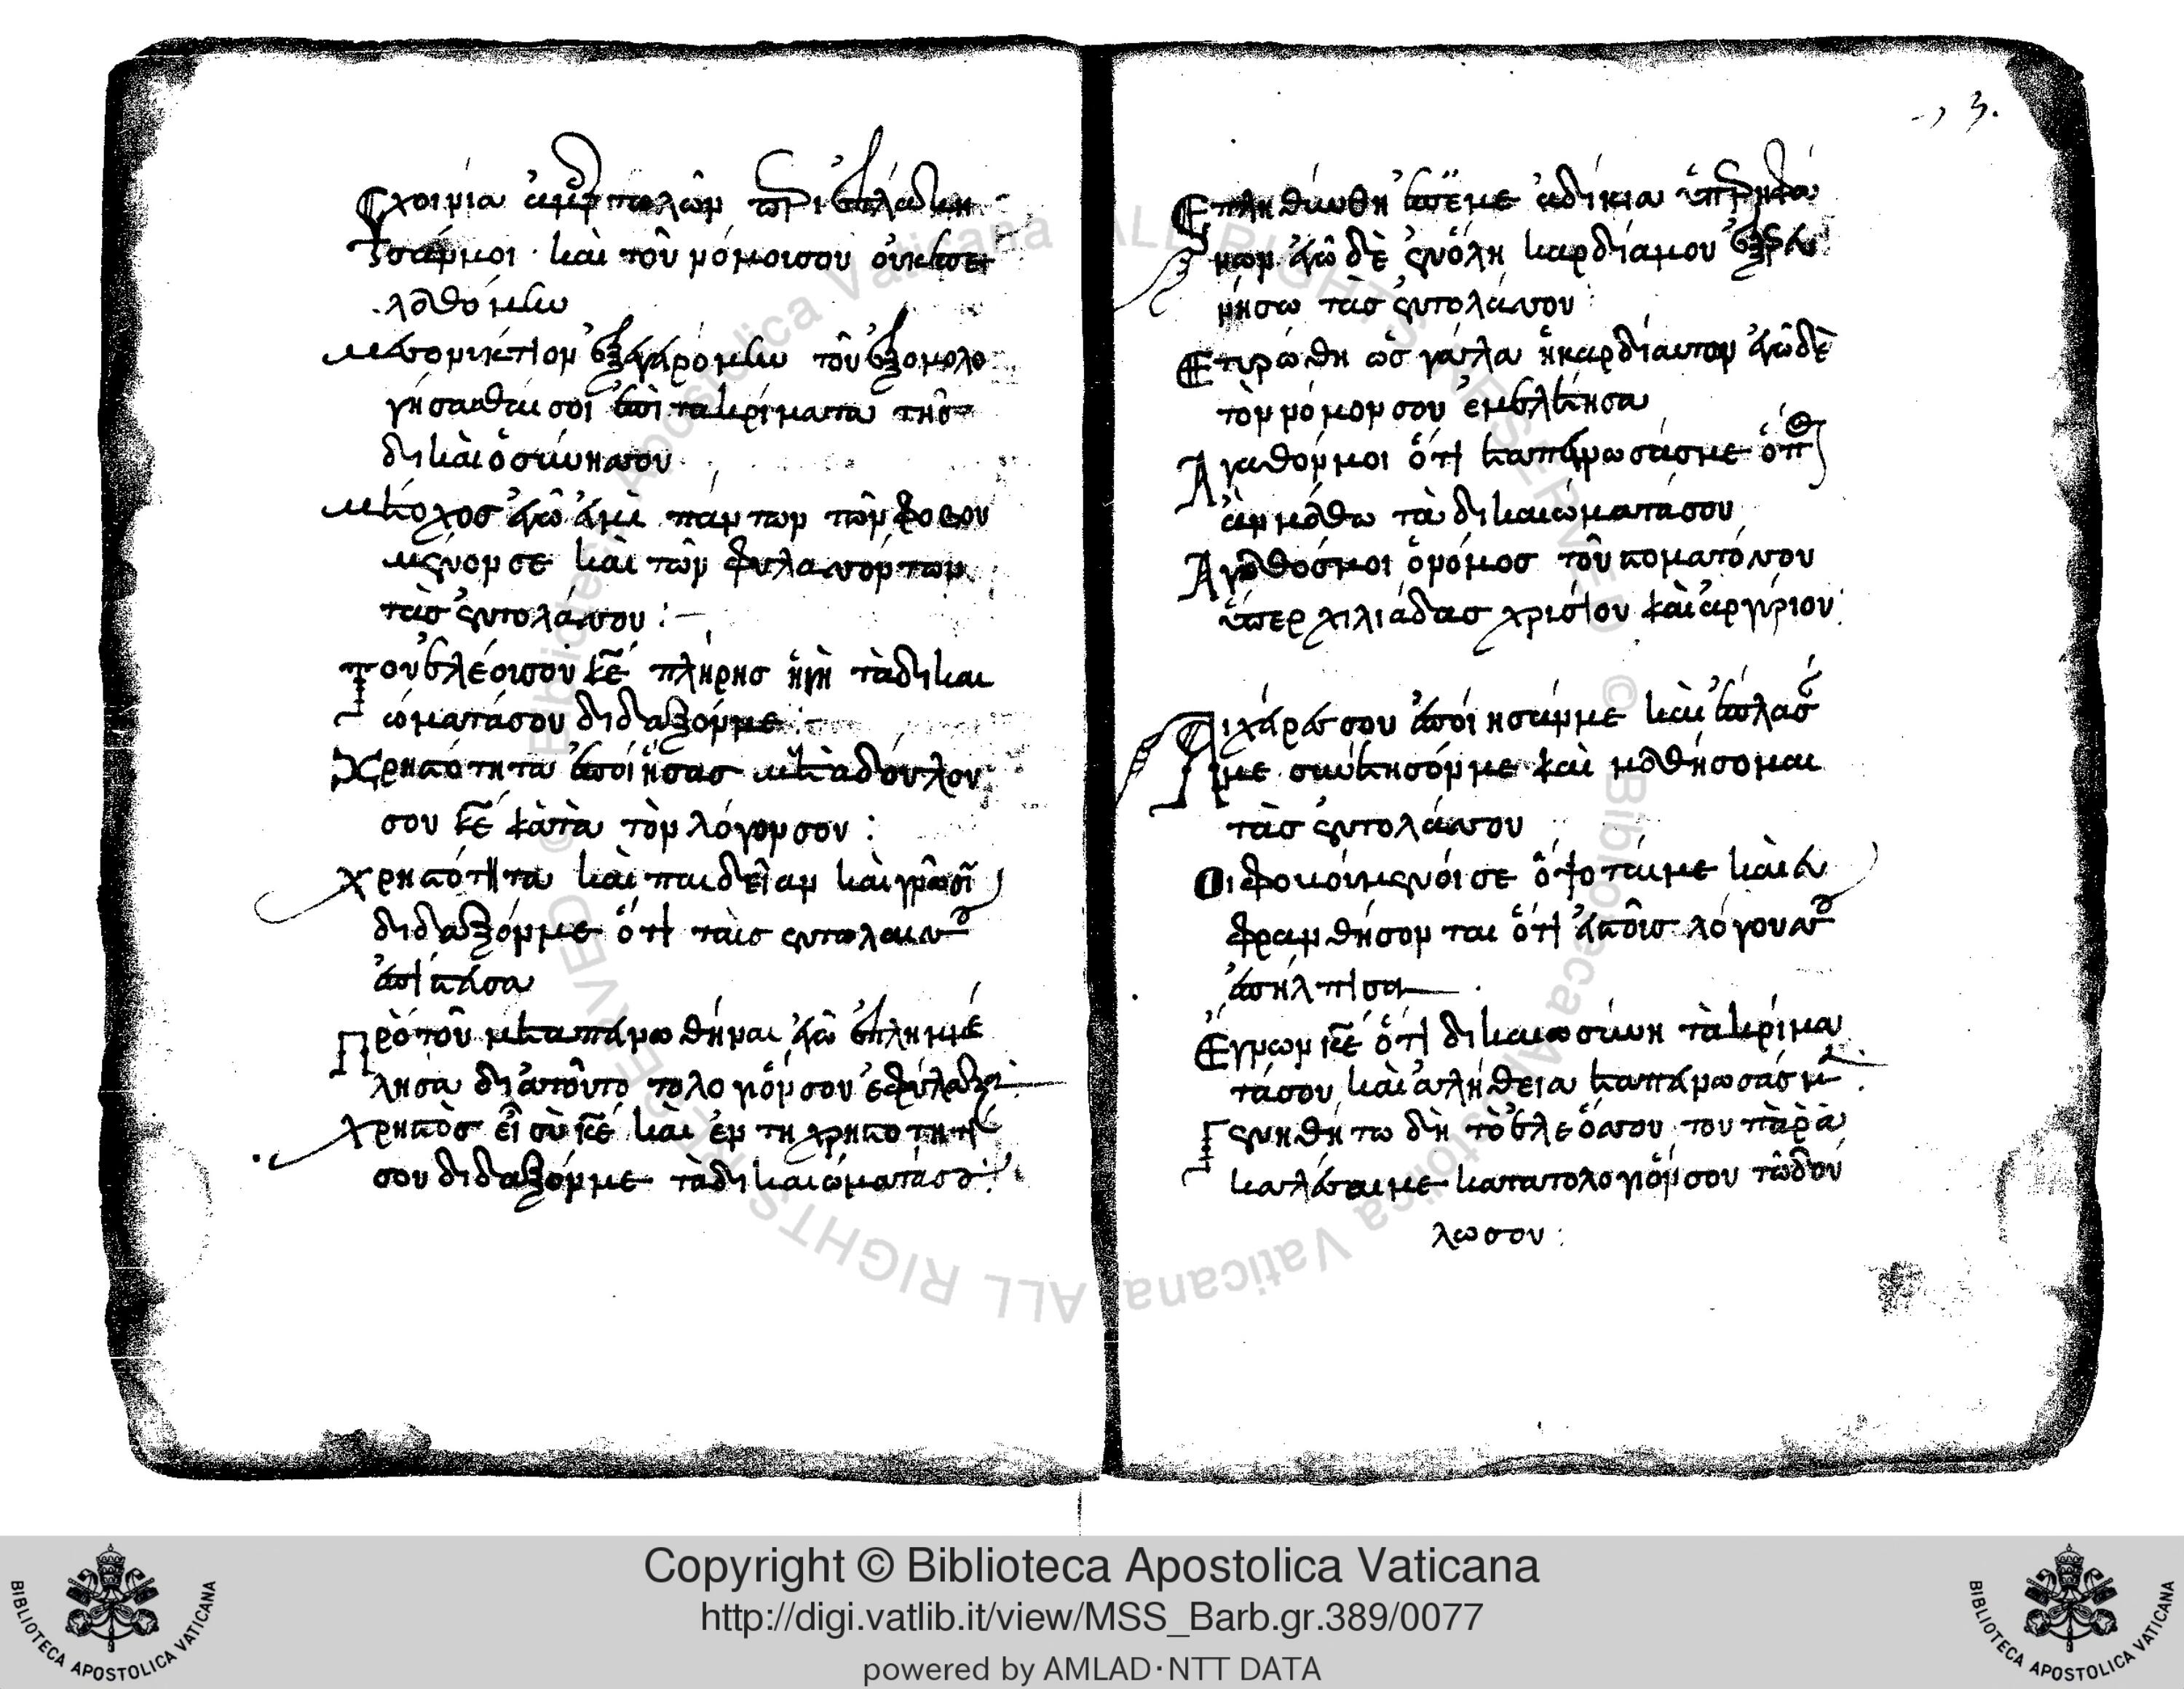 Σχοινία ἁμαρτωλῶν περιεπλάκη
σάν μοι · καὶ τοῦ νόμου σου οὐκ ἐπε
λαθόμην
Μεσονύκτιον ἐξεγειρόμην τοῦ ἐξομολο
γήσασθαί σοι ἐπὶ τα κρίματα τῆς
δικαιοσύνης σου
Μέτοχος ἐγώ εἰμὶ πάντων τῶν φοβου
μένον σε καὶ τῶν φυλασσόντων
τὰς ἐντολάς σου :
Τοῦ ἐλέους σου κε πλήρης ἡ γῆ τὰ δικαι
ώματά σου δίδαξόν με :
Χρηστότητα ἐποίησας μετὰ δούλου
σου κε κατὰ τὸν λόγον σου :
χρηστότητα καὶ παιδείαν καὶ γνῶσῖ
δίδαξόν με ὅτι ταῖς ἐντολαῖς σου
ἐπίστευσα
Πρὸ τοῦ με ταπεινωθῆναι ἐγὼ ἐπλημμέ
λησα διὰ τοῦτο το λόγιόν σου ἐφύλαξα
χρηστὸς εἶ σὺ κε καὶ ἐν τη χρηστοτητί
σου δίδαξόν με τὰ δικαιώματά σου :
Επληθύνθη ἐπ ἐμε ἀδικία ὑπερηφά
νων ἐγὼ δὲ ἐν ὅλη καρδία μου ἐξερευ
νήσω τὰς ἐντολάς σου :
Ετυρώθη ὡς γάλα ἡ καρδία αυτων ἐγὼ δὲ
τὸν νόμον σου ἐμελέτησα
Αγαθόν μοι ὅτι ἐταπείνωσάς με ὅπως
ἂν μάθω τὰ δικαιώματά σου
Αγαθός μοι ὁ νόμος τοῦ στοματός σου
ὑπερ χιλιάδας χρυσίου καὶ ἀργυρίου :
Αι χεῖρές σου ἐποίησάν με καὶ ἔπλασάν
με συνέτησόν με καὶ μαθήσομαι
τὰς ἐντολάς σου
Οι φοβούμενοί σε ὄψονταί με καὶ εὐ
φρανθήσονται ὅτι εἰς τοὺς λόγους σου
ἐπήλπισα
Εγνων κε ὅτι δικαιοσύνη τὰ κρίμα
τά σου καὶ ἀληθεια ἐταπείνωσάς με :
Γενηθήτω δὴ τὸ ἔλεός σου του παρα
καλέσαι με κατα το λόγιόν σου τῶ δού
λω σου :
Copyright © Biblioteca Apostolica Vaticana
http://digi.vatlib.it/view/MSS_Barb.gr.389/0077
powered by AMLAD·NTT DATA